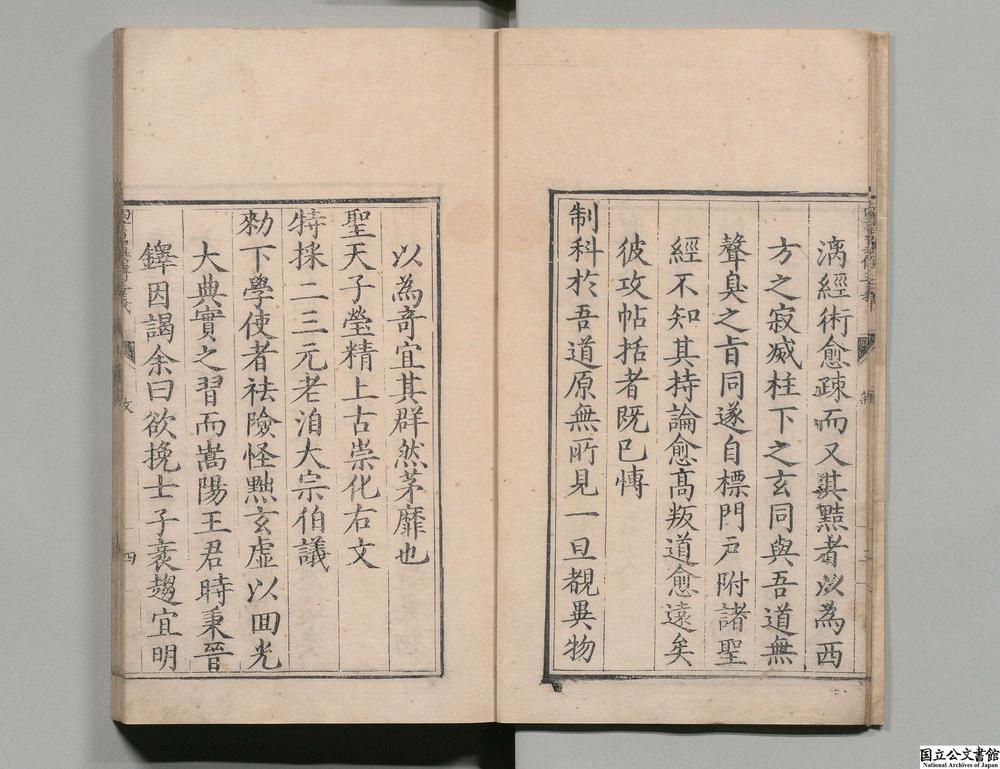 漓經術愈疎而又其黠者以為西
方之寂滅柱下之玄同與吾道無
聲臭之旨同遂自標門戸附諸聖
經不知其持論愈髙叛道愈遠矣
彼攻帖括者既已慱
制科於吾道原無所見一旦覩異物
以為竒宜其群然茅靡也
聖天子瑩精上古崇化右文
特採二三元老洎大宗伯議
勑下學使者祛險怪黜玄虛以囬光
大典實之習而嵩陽王君時秉晉
鐸因謁余曰欲挽士子衺趨宜明
四
国立公文書館
National Archives of Japan